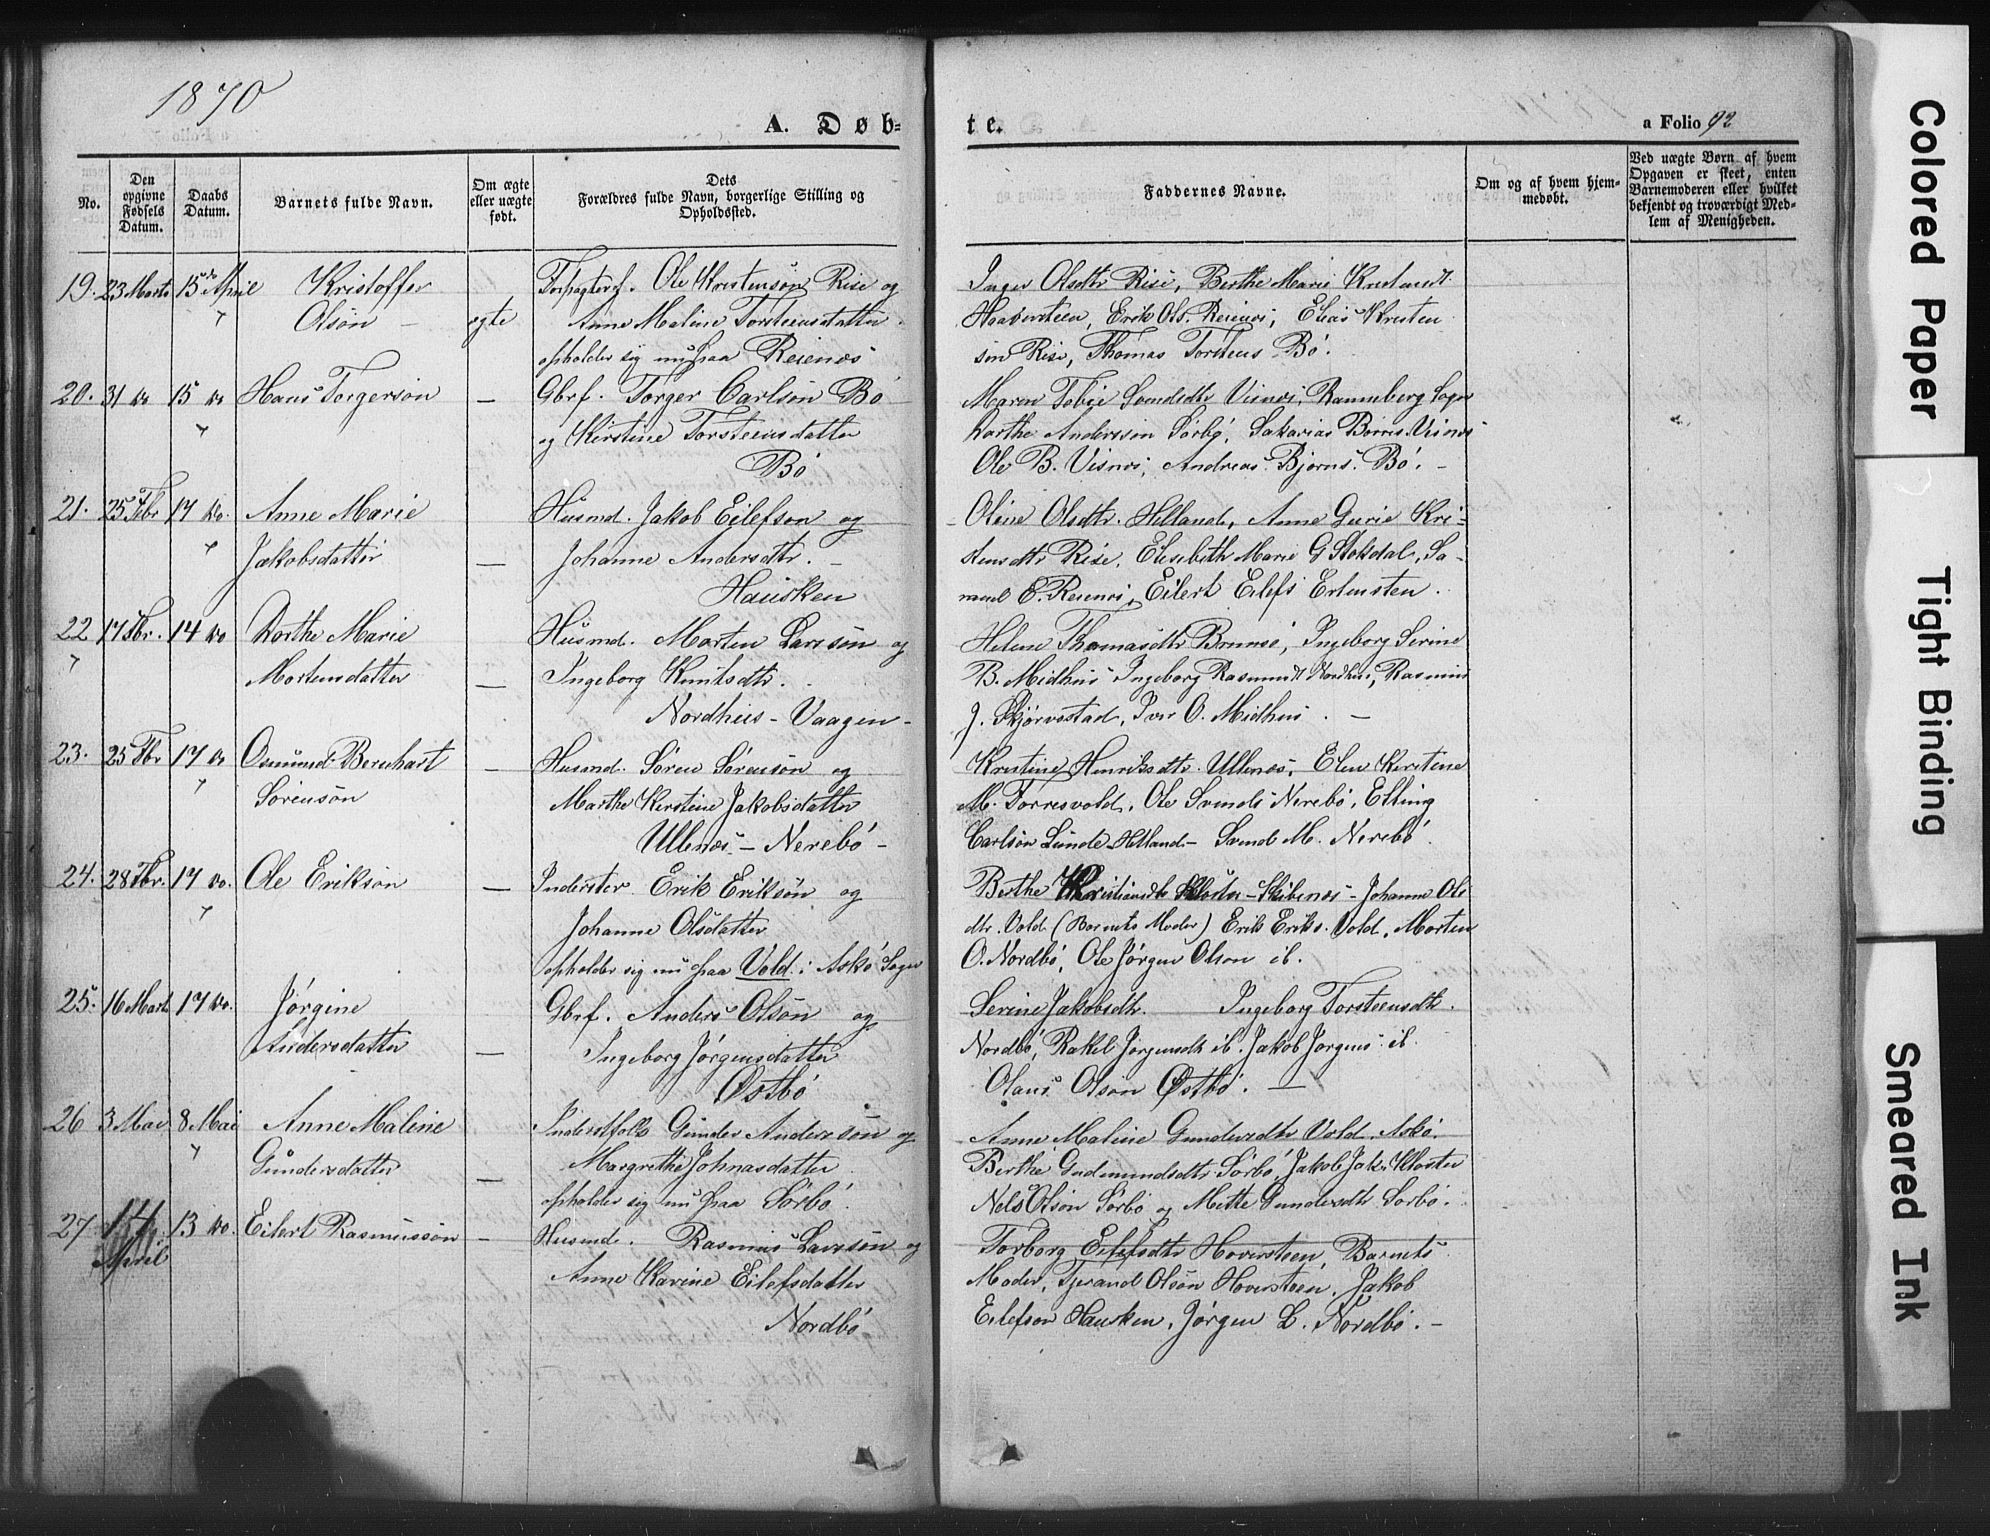 1870
A. Døb=
te.
a Folio 92
No.
Den opgivne Fødsels Datum.
Daabs Datum.
Barnets fulde Navn.
Om ægte eller uægte født.
Dets
Forældres fulde Navn, borgerlige Stilling og Opholdssted.
Faddernes Navne.
Om og af hvem hjem-
medøbt.
Ved uægte Børn af hvem
Opgaven er skeet, enten
Barnemoderen eller hvilket
bekjendt og troværdigt Med-
lem af Menigheden.
19. 23 Marts 15 April Kristoffer
Olsøn ægte
Ole Kristensøn Rise og
Anne Maline Torsteensdatter
opholder sig nu paa Reienæs
Inger Olsdtr Rise, Berthe Marie
Erik Ols. Reienæs, Elias Kristen
søn Rise, Thomas Torsteens Bø.
20. 31 do 15 do Hans Torgersøn —
Gbrf. Torger Carlsøn Bø
og Kirstine Torsteensdatter
Bø
Maren Tobie Svendsdtr Visnæs, Ranneberg Sogn
Dorthe Anderssøn Sørbø, Sakarias Børres. Visnæs
Ole B. Visnæs, Andreas Bjørns. Bø. —
21. 25 Febr 17 do. Anne Marie
Jakobsdatter —
Husmd. Jakob Eilefson og
Johanne Andersdtr. —
Hausken
Oline Olsdtr. Helland, Anne Gurie Kri-
stensdtr Rise, Elisebeth Marie G Stokdal, Sa-
muel E. Reienæs, Eilert Eilefs
22 17 Fbr. 14 do Dorthe Marie
Mortensdatter —
Husmd. Morten Larssøn og
Ingeborg Knutsdtr.
Nordhus - Vaagen -
Helene Thomasdtr Brunsø, Ingeborg Serine
B. Midhus Ingeborg Rasmusdt Nordhus, Rasmus
J. Skjørvestad, Iver O. Midhus . —
23. 25 Fbr 17 do Osmund Bernhart
Sørensøn —
Husmd. Søren Sørensøn og
Marthe Kirstine Jakobsdatter
Ullenæs - Nerebø -
Kristine Henriksdtr. Ullenæs, Elen Kirstine
M. Torresvold, Ole Svends Nerebø, Elling
Carlsøn Lunde Helland - Svend M. Nerebø
24. 28 Fbr. 17 do. Ole Eriksøn —
Inderster Erik Eriksøn og
Johanne Olsdatter
opholder sig nu paa Vold i Askø Sogn
Berthe Kristiansdtr Kloster - Skibenæs - Johanne Ols
dtr. Vold (Barnets Moder) Erik Eriks. Vold, Morten
O. Nordbø, Ole Jørgen Olson ib.
25. 16 Marts 17 do. Jørgine
Andersdatter —
Gbrf. Anders Olsøn og
Ingeborg Jørgensdatter
Østbø
Serine Jakobsdtr. Ingeborg Torsteensdtr.
Nordbø, Rakel Jørgensdtr ib. Jakob Jørgens ib.
Olaus Olsøn Østbø. —
26 3 Mar 8 Mai Anne Maline
Gundersdatter —
Inderstfolk Gunder Anderssøn og
Margrethe Johnasdatter
opholder sig nu paa Sørbø.
Anne Maline Gundersdtr Vold. Askø.
Berthe Gudmundsdtr Sørbø Jakob Jak. Kloster
Nels Olsøn Sørbø og Mette Gundersdtr Sørbø.
27 14 April 13 do. Eilert Rasmussøn —
Husmd. Rasmus Larssøn og
Anne Karine Eilefsdatter
Nordbø
Torborg Eilefsdtr Hoversteen, Barnets
Moder, Tjerand Olsøn Hoversteen, Jakob
Eilefson Hausken, Jørgen L. Nordbø. —
Colored Paper
Tight Binding
Smeared Ink